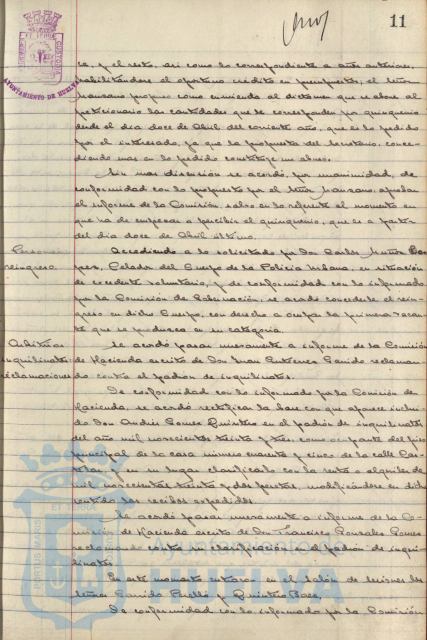 11
ce, y el resto, así como lo correspondiente a años anteriores,
habilitándose el oportuno crédito en presupuestos, el señor
Manzano propuso como enmienda al dictamen que se abone al
peticionario las cantidades que le correspondan por quinquenio
desde el día doce de Abril del corriente año, que es lo pedido
por el interesado, ya que la propuesta del Secretario, conce-
diendo más en lo pedido constituye un abuso.
Sin más discusión se acordó, por unanimidad, de
conformidad con lo propuesto por el señor Manzano, aprobar
el informe de la Comisión, salvo en lo referente al momento en
que ha de empezar a percibir el quinquenio, que es a partir
del día doce de Abril último.
Personal
reingreso
Accediendo a lo solicitado por Don Carlos Muñoz
Celador del Cuerpo de la Policía Urbana, en situación
de excedente voluntario, y de conformidad con lo informado
por la Comisión de Gobernación, se acordó concederle el rein-
greso en dicho Cuerpo, con derecho a ocupar la primera vacan-
te que se produzca en su categoría.
Arbitrios
inquilinato
reclamaciones
Se acordó pasar nuevamente a informe de la Comisión
de Hacienda escrito de Don Juan Gutiérrez Garrido reclaman-
do contra el padrón de inquilinatos.
De conformidad con lo informado por la Comisión de
Hacienda, se acordó rectificar la base con que aparece inclui-
do Don Andrés Gómez Quintero en el padrón de inquilinatos
del año mil novecientos treinta y tres, como parte del piso
principal de la casa número cuarenta y cinco de la calle
y en su lugar clasificarlo con la renta o alquiler de
mil novecientas treinta y dos pesetas, modificándose en dicho
sentido los recibos expedidos.
Se acordó pasar nuevamente a informe de la Co-
misión de Hacienda escrito de Don Francisco González Gómez
reclamando contra su clasificación en el padrón de inqui-
linatos.
En este momento entraron en el salón de sesiones los
señores Garrido Perelló y Quintero Báez.
De conformidad con lo informado por la Comisión
AYUNTAMIENTO DE HUELVA
Ayuntamiento de